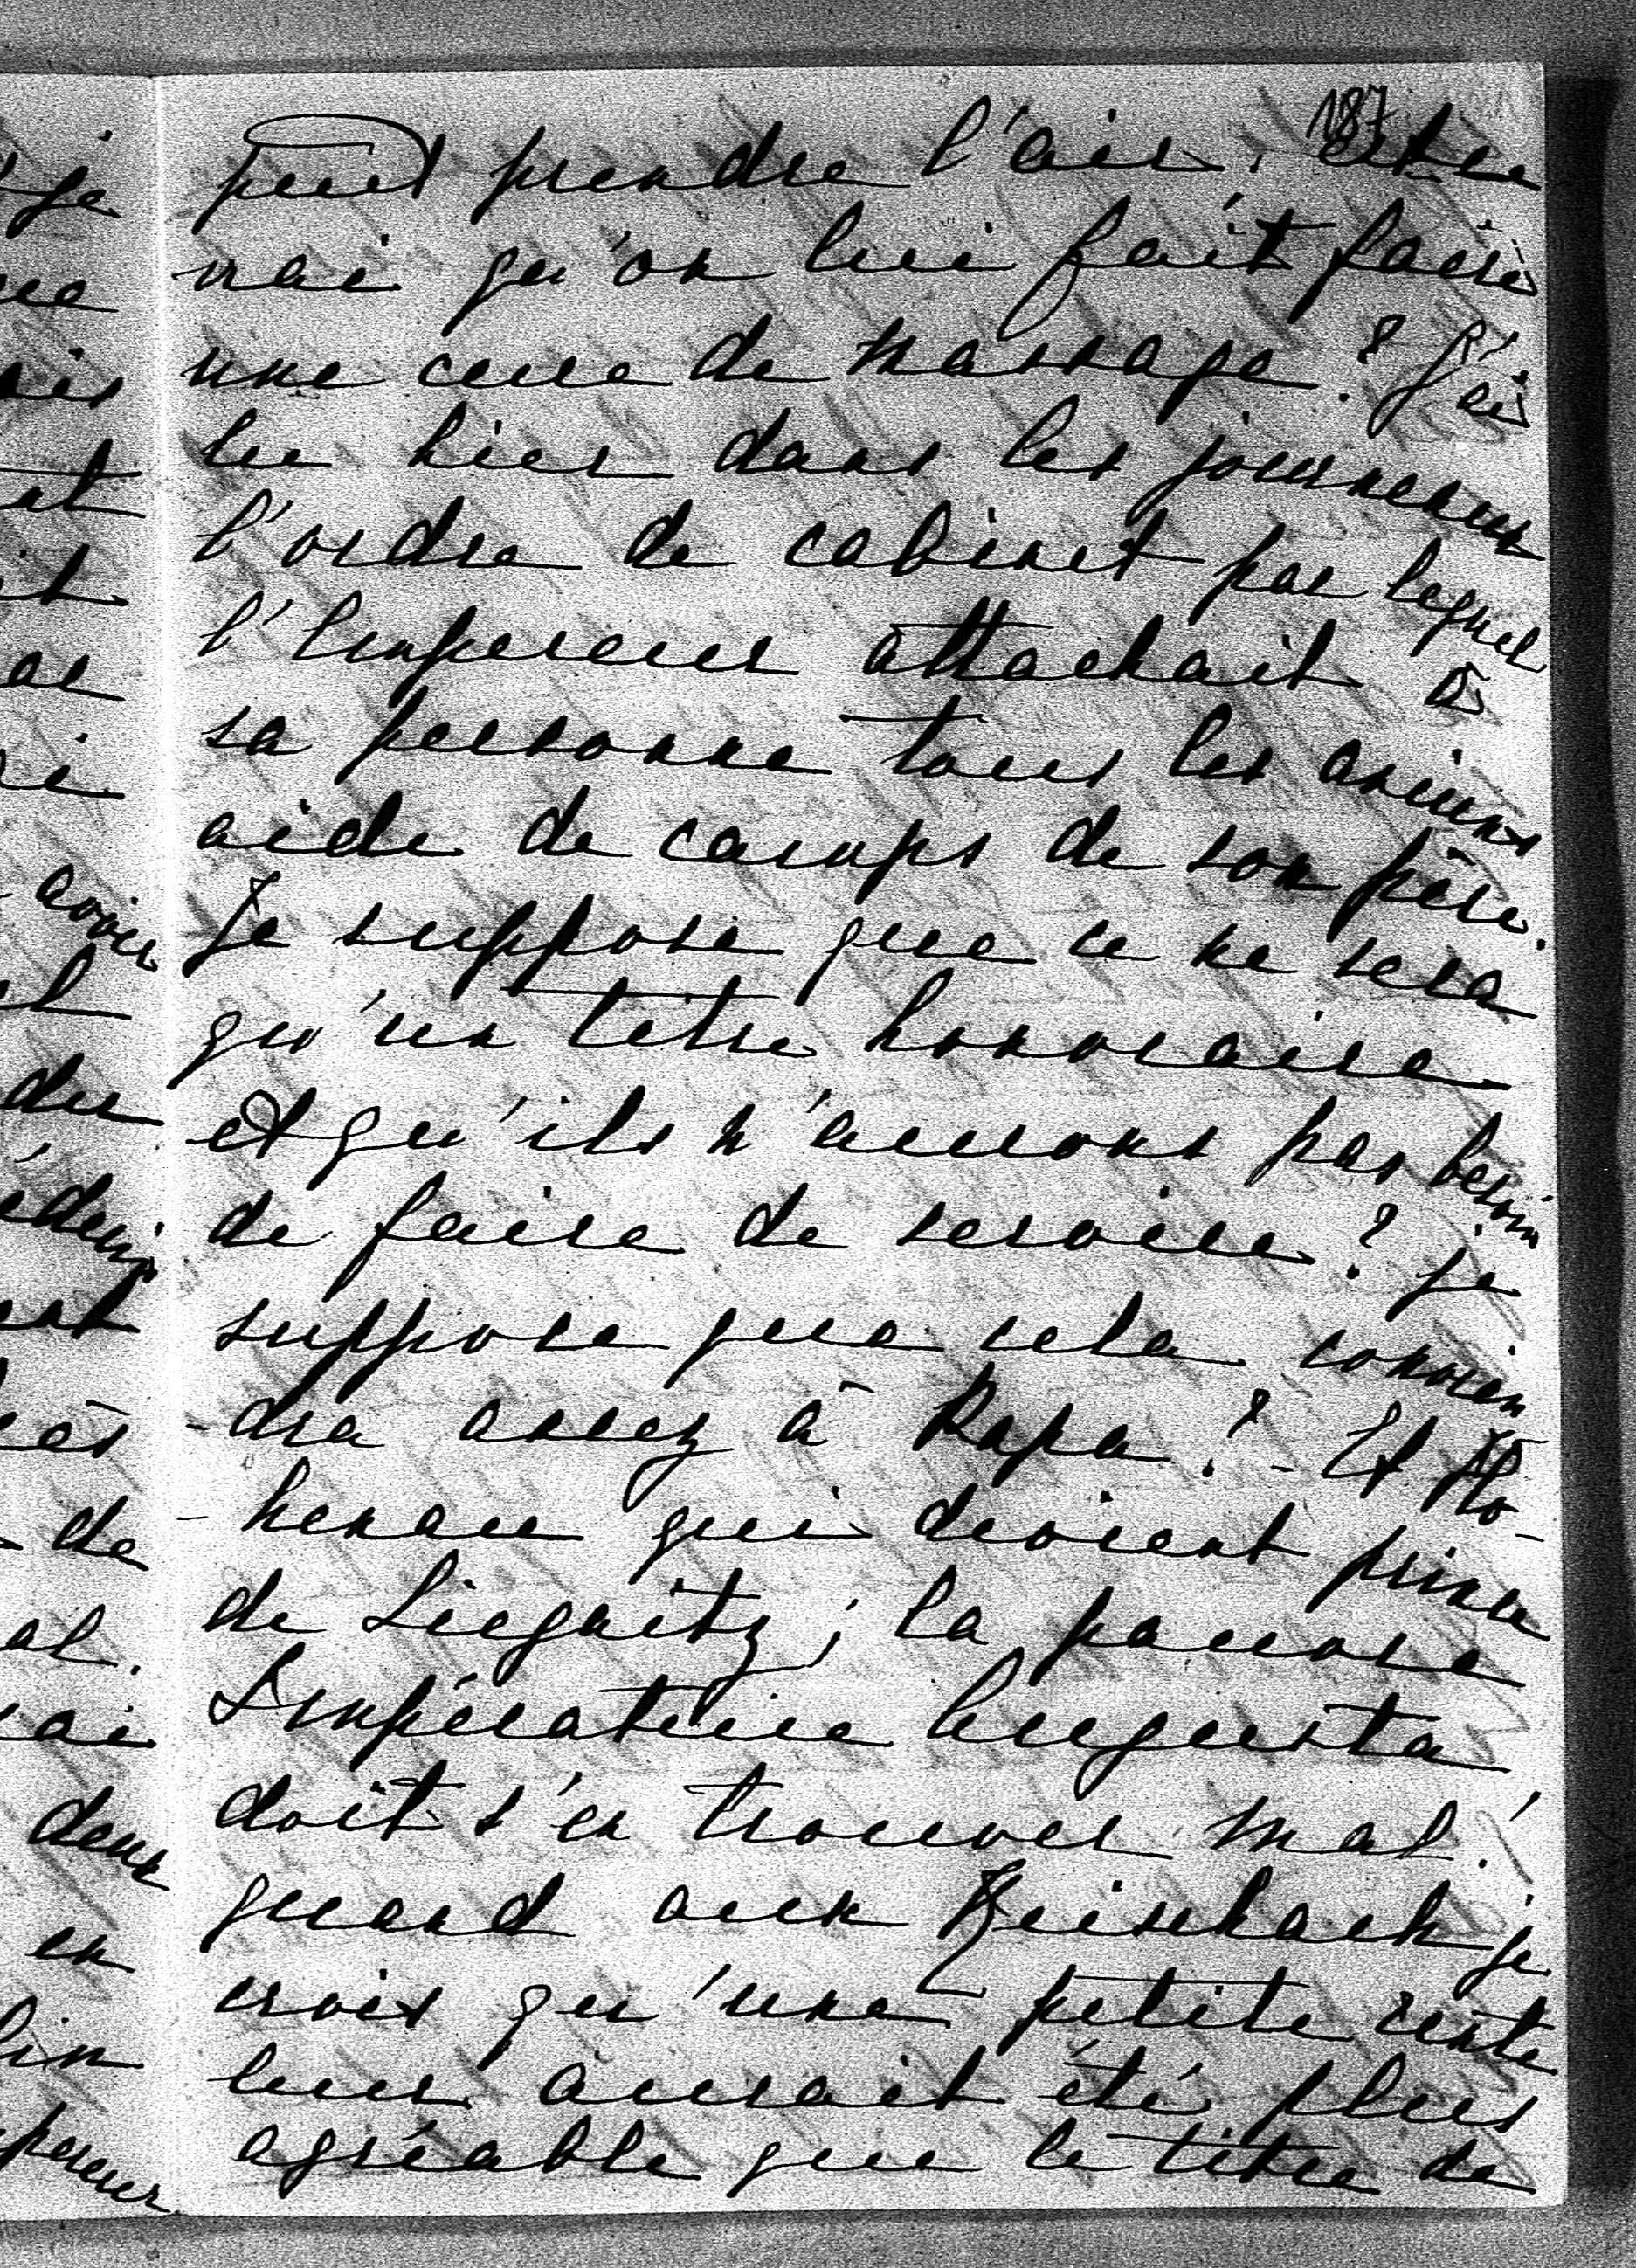 187
peut prendre l'air. est ce
vrai qu'on lui fait faire
une cure de massage? J'ai
lu hier dans les journeaux
l'ordre de cabinet par lequel
l'Empereur attachait à
sa personne tous les anciens
aide de camps de son père.
Je suppose que ce ne sera
qu'un titre honoraire
et qu'ils n'aurons pas besoin
de faire de service? je
suppose que cela convien
-dra assez à Papa? - Et Ho-
-henau qui devient prince
de Liegnitz; la pauvre
Impératrice Augusta,
doit s'en trouver mal!
quand aux Reischach je
crois qu'une petite rente
leur aurait été plus
agréable que le titre de